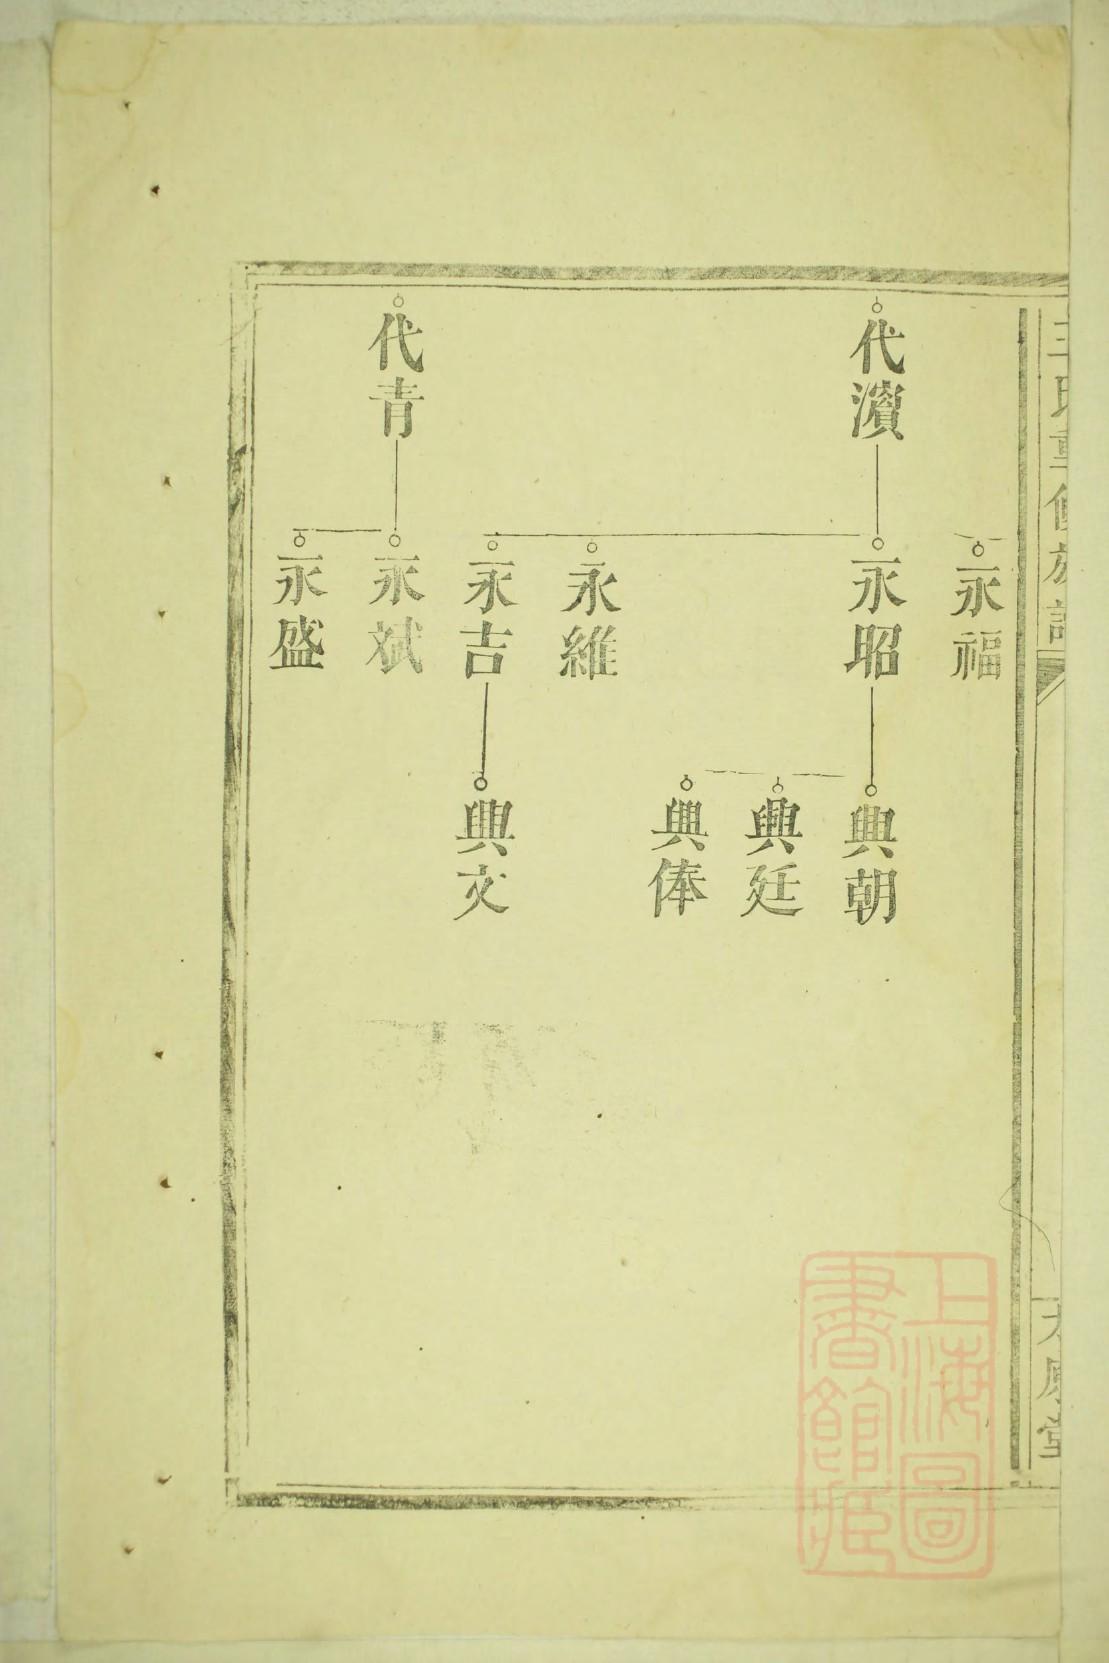 王氏重修族譜
永福
代濱
永昭
興朝
興廷
興俸
永維
永吉
興文
代青
永斌
永盛
上海圖
書館藏